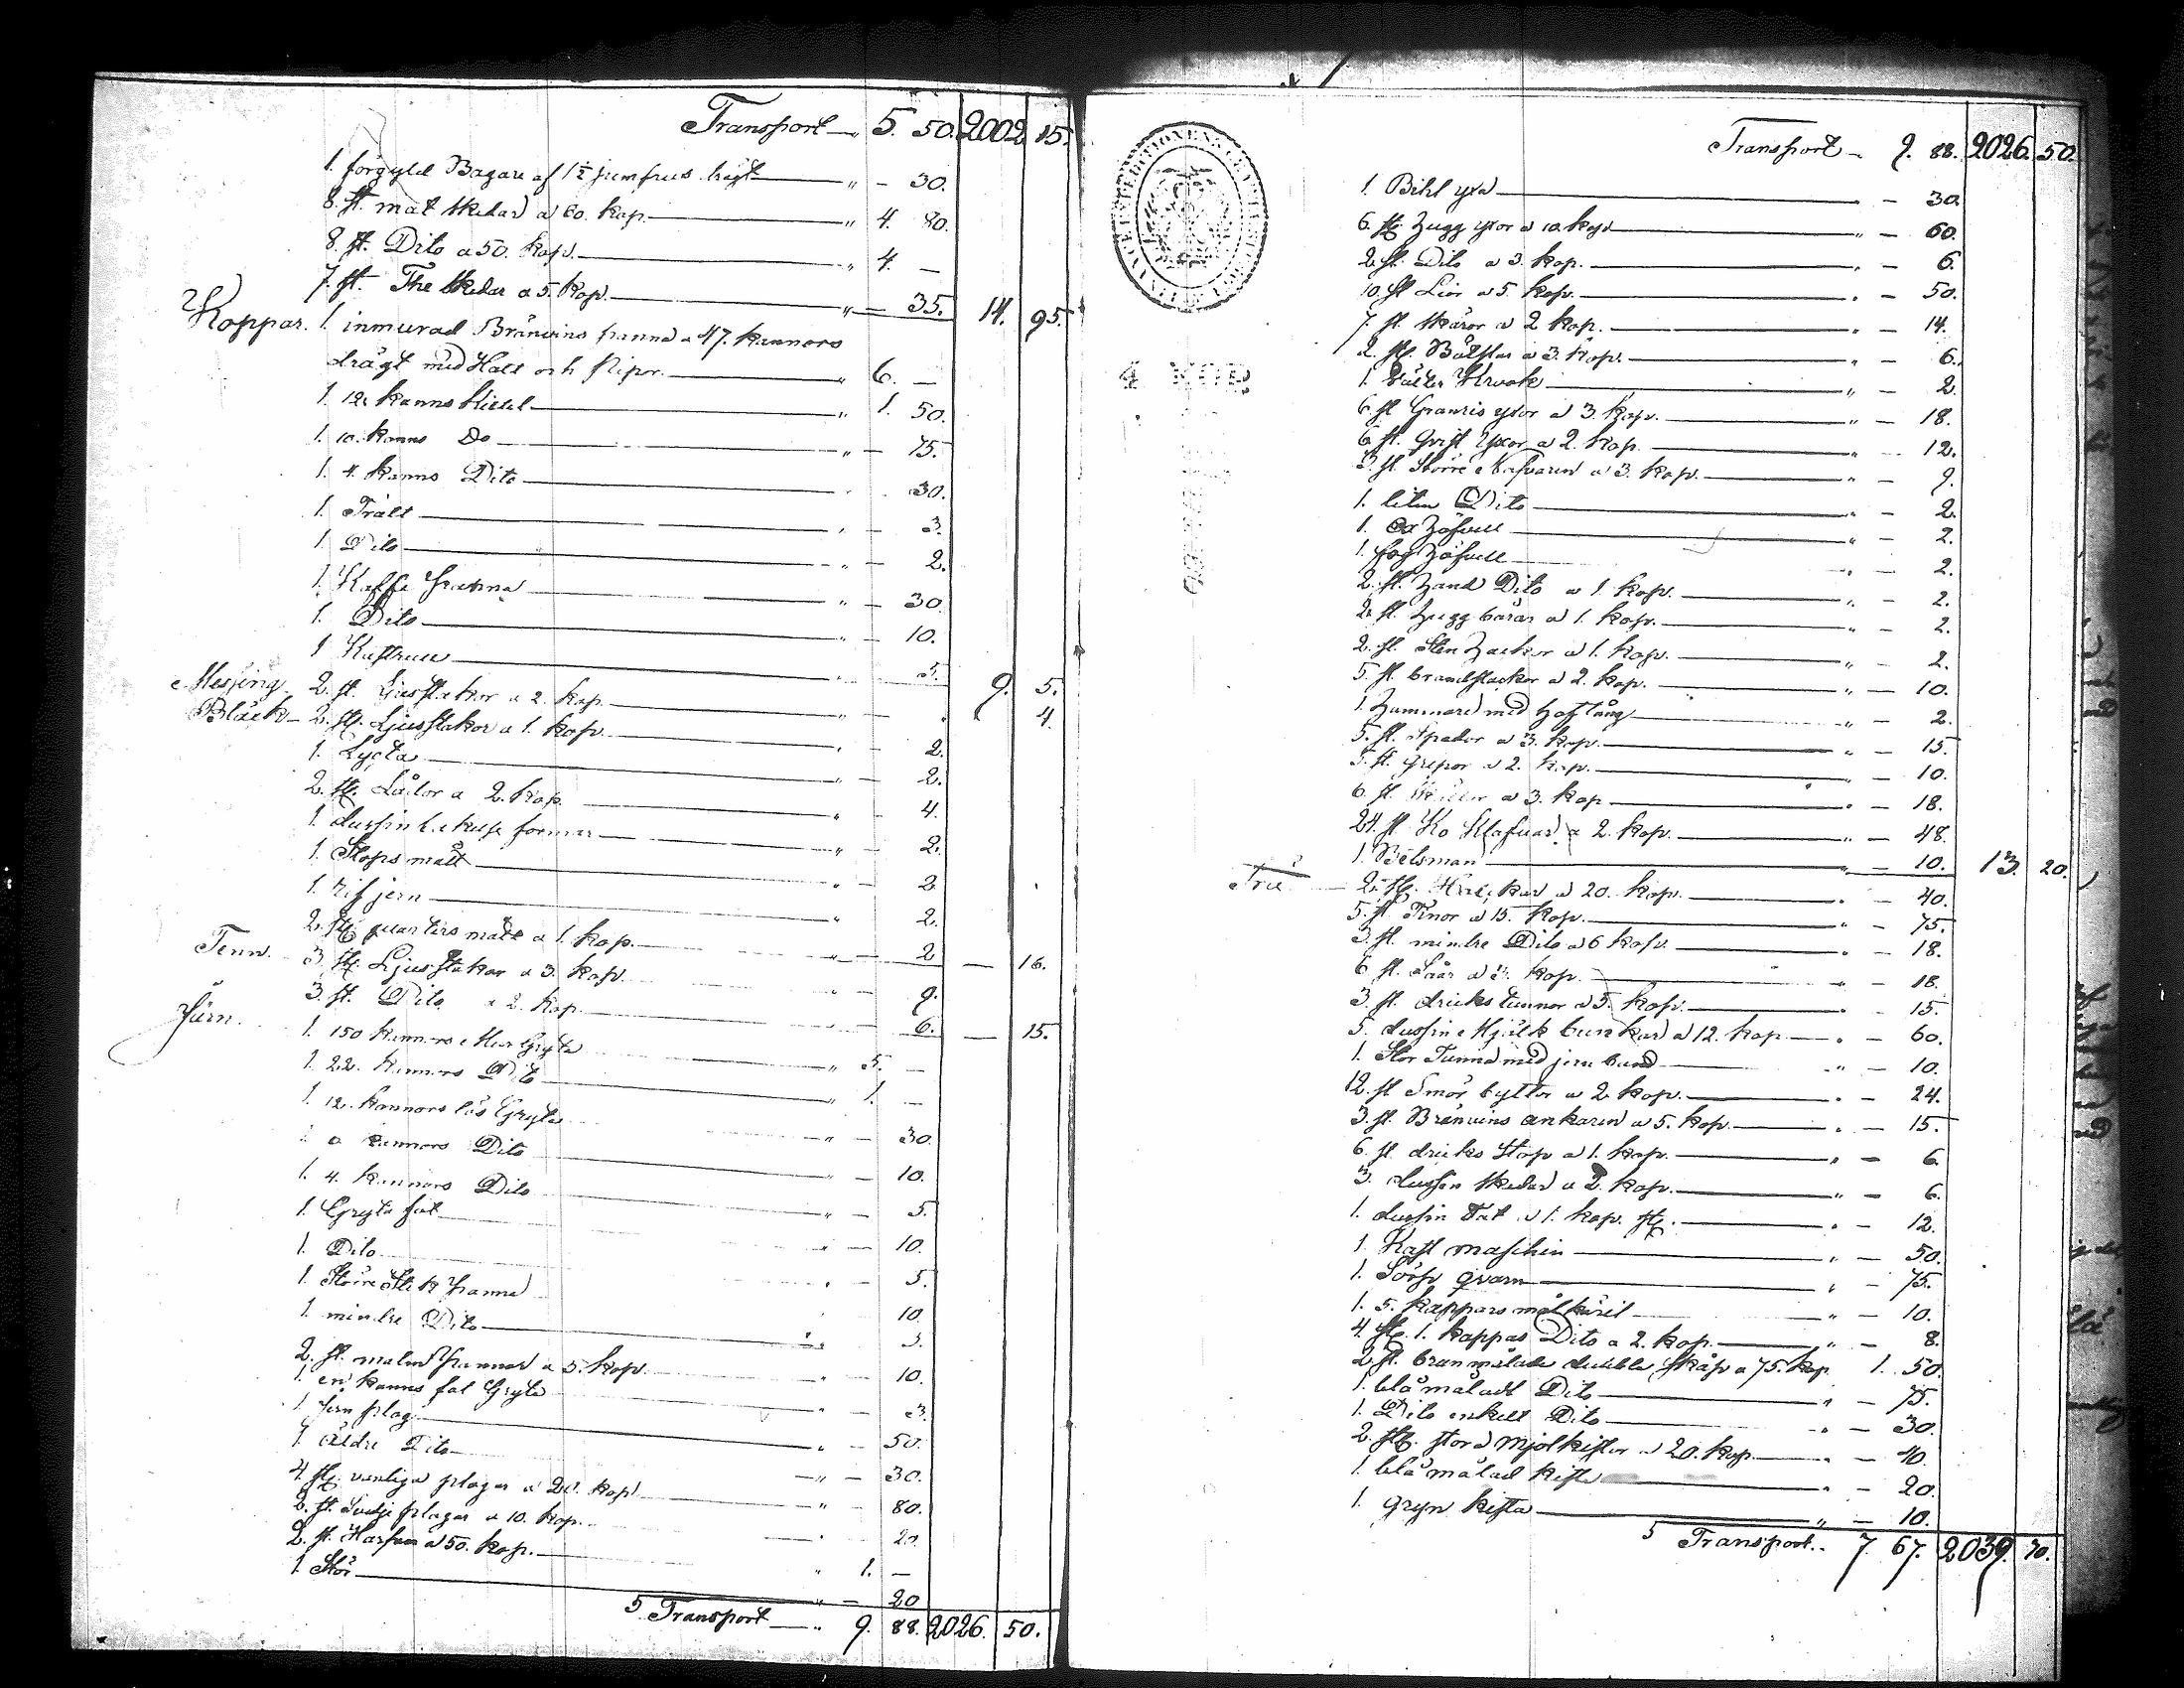 Transport — 5. 50. 2002. 15.
1. förgyld Bägare af 1 ½ jumfrus drägt — „ — 30.
8. st. mat skedar a 60. kop. — „ 4. 80.
8. st. Dito a 50. kop. — „ 4. —
7. st. The skedar a 5. kop. — „ — 35. 14. 95.
Koppar. 1. inmurad Bränvins panna a 47. kannors
drägt med Hatt och Pipor — „ 6. —
1. 12. kanns Kittel — „ 1. 50.
1. 10. kanns Do — „ — 75.
1. 4. kanns Dito — 30.
1. Tratt — „ — 3.
1. Dito — „ — 2.
1. Kaffe Panna — „ — 30.
1. Dito — „ — 10.
1 Kastrull — „ 5. 9. 5.
Messing. 2. st. Ljusstakar a 2. kop. — „ — . 4.
Bläck — 2. st. Ljusstakar a 1. kop. — „ — 2.
1. Lyckta — „ — 2.
2. st. Låtor a 2. kop. — „ — 4.
1. dussin formar — „ — 2.
1. Stops mått — „ — 2
1. rif jern — „ 2.
2. st. quarters mått a 1. kop. — „ — 2 — 16.
Tenn. 3 st. Ljusstakar a 3. kop. — „ — 9.
3. st. Dito a 2. kop — „ — 6. — 15.
Järn. 1. 150 kannors Mur Gryta — „ 5. —
1. 22. kannors Dito — „ 1. —
1. 12. kannors lös Gryta — „ — 30.
kannors Dito — „ — 10.
1. 4. kannors Dito — „ — 5.
1. Gryta fat — „ — 10.
1. Dito — „ — 5.
1. Större Stek Panna — 10.
1. mindre Dito — „ 5.
2. st. malm Pannor a 5. kop. — „ — 10.
1. en kanns fat Gryta — „ — 3.
1. Jern plog — „ — 50.
1. Äldre Dito — „ — 30.
4. st. vanliga plogar a 20. kop — „ — 80.
2. st. plogar a 10. kop. — 20.
2. st. Harfvar a 50. kop. — „ 1. —
1. Stör — „ — 20
5 Transport — „ 9. 88. 2026. 50.
Transport — 9. 88. 2026. 50.
4 KOP
1. Bihl yxa — „ — 30.
6. st. hugg yxor a 10. kop. — „ — 60.
2. st. Dito a 3. kop. — „ — 6.
10. st. Liar a 5. kop. — „ — 50.
7. st. skäror a 2 kop. — „ — 14.
2. st. a 3. kop. — „ — 6.
1. Krook — „ — 2.
6. st. Granris yxor a 3. kop. — „ — 18.
6. st. qvist Yxor a 2. kop. — „ — 12.
3. st. Större Nafvaren a 3. kop. — „ — 9.
1. liten Dito — „ — 2.
1. Ox höfvell — „ — 2.
1. fog höfvell — „ — 2.
2. st. hand Dito a 1. kop. — „ — 2.
2. st. hugg a 1. kop. — „ — 2.
2. st. Sten hackor a 1. kop. — „ — 2.
5. st. a 2. kop. — „ — 10.
1. hammare med hof tång — „ — 2.
5. st. Spador a 3. kop. — „ — 15.
5. st. grepor a 2. kop. — „ — 10.
6. st. a 3. kop — „ — 18.
24. st. Ko Klafvar a 2. kop. — „ — 48.
1. Betsman — „ — 10. 13. 20.
Trä — 2. st. kar a 20. kop. — „ — 40.
5. st. Tinor a 15. kop. — „ — 75.
3. st. mindre Dito a 6 kop. — „ — 18.
6 st. Såar a 3. kop. — „ — 18.
3. st. dricks tunnor a 5. kop. — „ — 15.
5. dussin Mjölk bunkar a 12. kop. — „ — 60.
1. Stor Tunna med jern band — „ — 10.
12. st Smör byttor a 2. kop. — „ — 24.
3. st. Bränvins ankaren a 5. kop. — „ — 15.
6. st. dricks Stop a 1. kop. — „ — 6.
3. dussin skedar a 2. kop. — „ — 6.
1. dussin Fat a 1. kop. st. — „ — 12.
1 Kast maschin — „ — 50.
1. qvarn — „ — 75.
1. 5. kappars mål käril — „ — 10.
4. st. 1. kappas Dito a 2. kop. — „ — 8.
2. st. brunmålade dubbla skåp a 75. kop. 1. 50.
1. blå måladt Dito — „ — 75.
1. Dito enkelt Dito — „ — 30.
2. st. stora mjölkistor a 20. kop. — „ — 40.
1. blå målad kista — „ — 20.
1. gryn kista — „ — 10.
5 Transport. — 7. 67. 2039. 70.